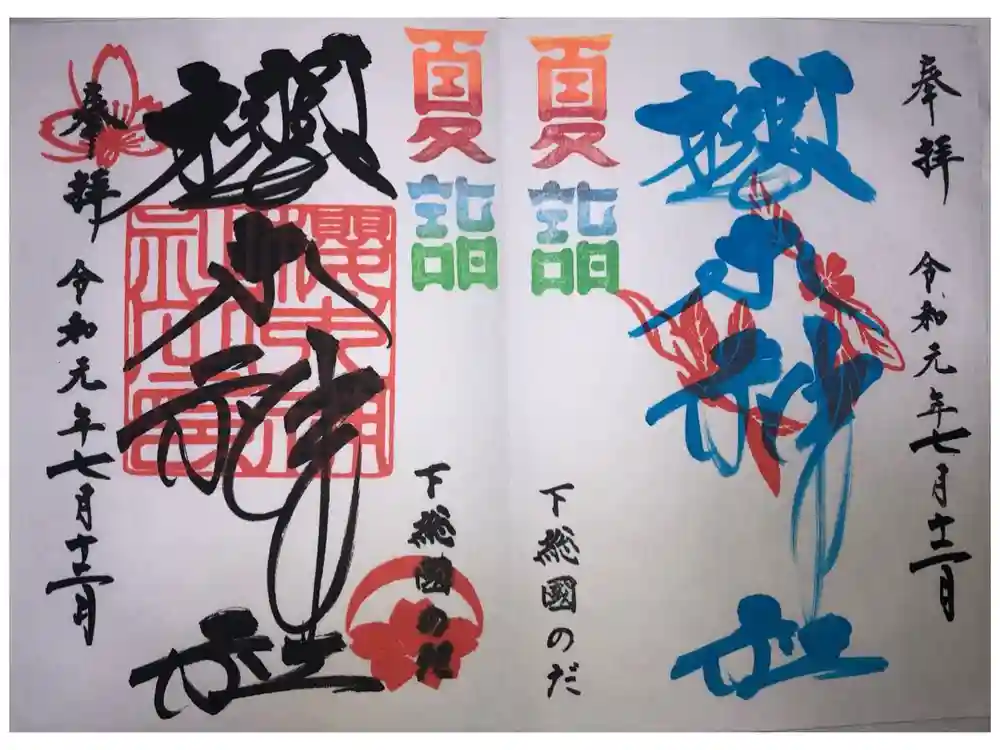 奉拝
令和元年七月十二日
櫻木神社
夏詣
下総國のだ
夏詣
下総國のだ
櫻木神社
奉拝
令和元年七月十二日